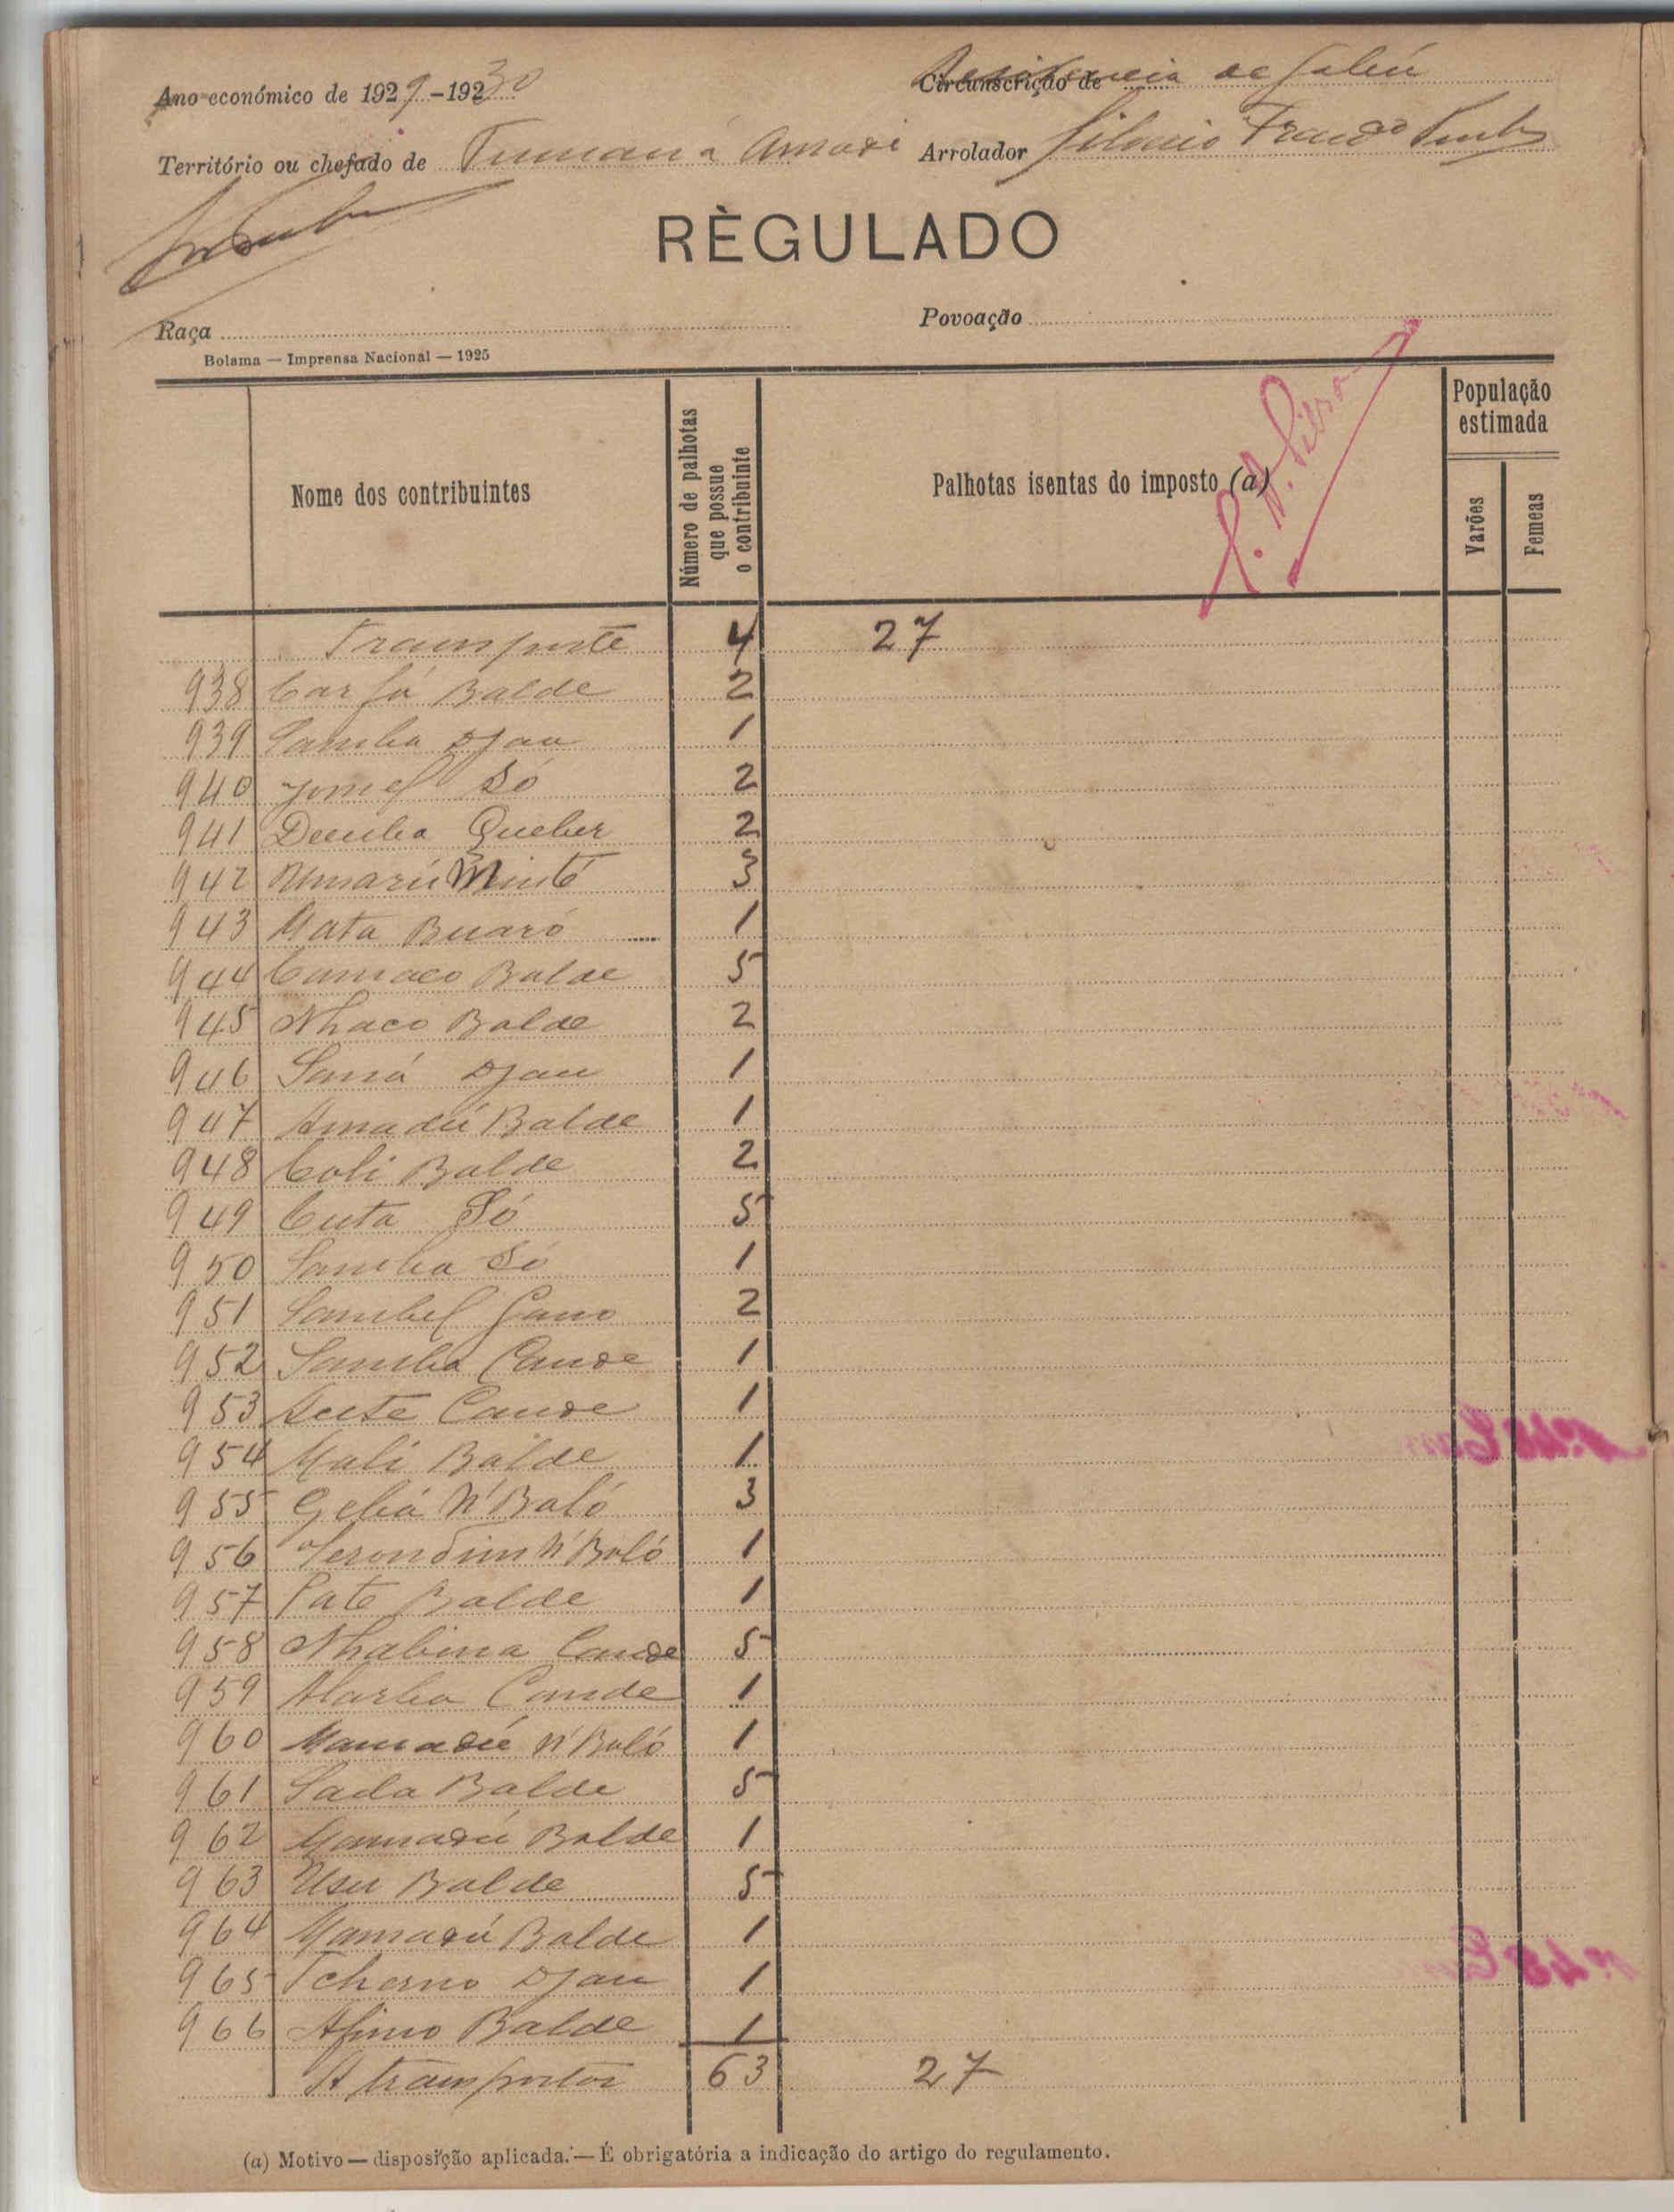 Ano económico de 1929-1930
Circunscrição de Residencia de Gabú
Território ou chefado de Tumaná Amadi Arrolador
RÈGULADO
Raça
Povoação
Bolama — Imprensa Nacional — 1925
Nome dos contribuintes
Número de palhotas que possue o contribuinte
Palhotas isentas do imposto (a)
População estimada
Varões
Femeas
Transporte 4 27
938 Carfá Balde 2
939 Samba Djau 1
940 Jomel Só 2
941 Demba Queber 2
942 Umarú Minté 3
943 Mata Buaró 1
944 Camaco Balde 5
945 Nhaco Balde 2
946 Samá Djau 1
947 Amadú Balde 1
948 Coli Balde 2
949 Cuta Só 5
950 Samba Só 1
951 Sambel Gano 2
952 Samba Cande 1
953 Cande 1
954 Mali Balde 1
955 Gebá N'Baló 3
956 N'Baló 1
957 Pate Balde 1
958 Nhabina Cande 5
959 Cande 1
960 Mamadú N'Baló 1
961 Sada Balde 5
962 Mamadú Balde 1
963 Usu Balde 5
964 Mamadú Balde 1
965 Tcherno Djau 1
966 Balde 1
A transportar 63 27
(a) Motivo — disposição aplicada. — É obrigatória a indicação do artigo do regulamento.